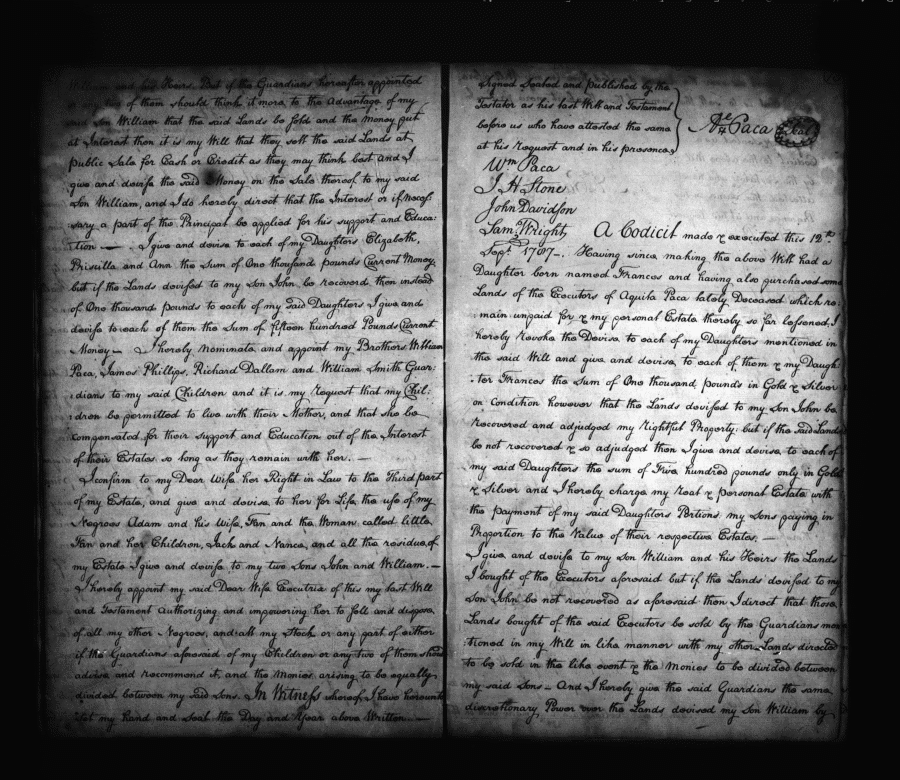 William and his Heirs. But if the Guardians hereafter appointed
or any two of them should think it more to the Advantage of my
said Son William that the said Lands be sold and the Money put
at Interest then it is my Will that they sell the said Lands at
public Sale for Cash or Credit as they may think best and I
give and devise the said Money on the Sale thereof to my said
Son William, and I do hereby direct that the Interest or if Necef-
sary a part of the Principal be applied for his support and Educa:
:tion — . I give and devise to each of my Daughters Elizabeth,
Priscilla and Ann the Sum of One thousand pounds Current Money,
but if the Lands devised to my Son John be recovered then instead
of One thousand pounds to each of my said Daughters I give and
devise to each of them the Sum of fifteen hundred Pounds Current
Money — I hereby nominate and appoint my Brothers William
Paca, James Phillips, Richard Dallam and William Smith Guar:
:dians to my said Children and it is my Request that my Chil:
:dren be permitted to live with their Mother, and that she be
compensated for their support and Education out of the Interest
of their Estates so long as they remain with her. —
I confirm to my Dear Wife her Right in Law to the Third part
of my Estate, and give and devise to her for Life the use of my
Negroes Adam and his Wife, Fan and the Woman called little
Fan and her Children, Jack and Nance, and all the residue of
my Estate I give and devise to my two Sons John and William. —
I hereby appoint my said Dear Wife Executrix of this my last Will
and Testament Authorizing and impowering her to sell and dispose
of all my other Negroes, and all my Stock or any part of either
if the Guardians aforesaid of my Children or any two of them shou
advise and recommend it, and the Monies arising to be equally
divided between my said Sons. In Witness whereof I have hereunto
set my hand and Seal the Day and Year above Written. —
Signed Sealed and Published by the
Testator as his last Will and Testament
before us who have attested the same
at his request and in his presence
Aq Paca Seal
Wm Paca
J H Stone
John Davidson
Sam. Wright,
A Codicil made & executed this 12th
Sept. 1787 -. Having since making the above Will had a
Daughter born named Frances and having also purchased some
Lands of the Executors of Aquila Paca lately Deceased which re:
:main unpaid for & my personal Estate thereby so far lessened, I
hereby Revoke the Devise to each of my Daughters mentioned in
the said Will and give and devise to each of them & my Daugh:
:ter Frances the Sum of One thousand pounds in Gold & Silver
on Condition however that the Lands devised to my Son John be
recovered and adjudged my rightful Property: but if the said Lands
be not recovered & so adjudged then I give and devise to each of
my said Daughters the sum of Five hundred pounds only in Gold
& Silver and I hereby charge my real & personal Estate with
the payment of my said Daughters Portions my Sons paying in
Proportion to the Value of their respective Estates. —
I give and devise to my Son William and his Heirs the Lands
I bought of the Executors aforesaid but if the Lands devised to my
Son John be not recovered as aforesaid then I direct that those
Lands bought of the said Executors be sold by the Guardians men
:tioned in my Will in like manner with my other Lands directed
to be sold in the like event & the Monies to be divided between
my said Sons — And I hereby give the said Guardians the same
discretionary Power over the Lands devised my Son William by